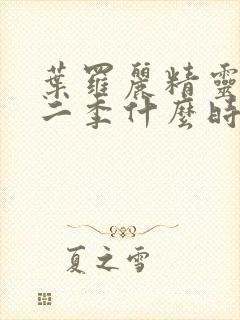 葉羅麗精靈
二季什麼時
夏之雪